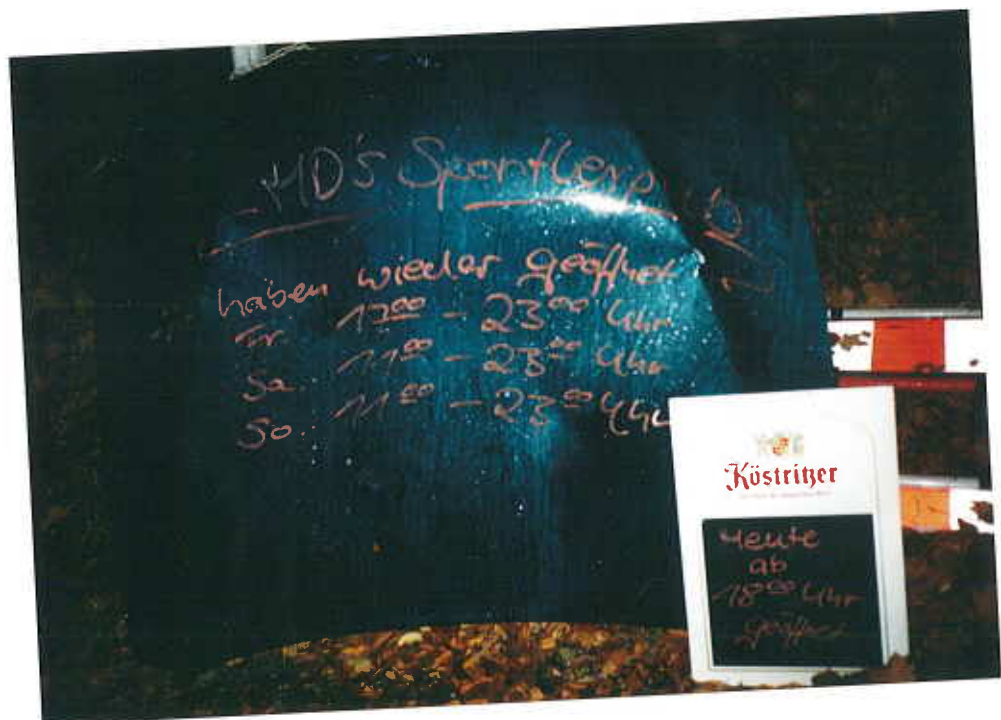 MD's Sportlerp
haben wieder geöffnet
Fr. 17⁰⁰ - 23⁰⁰ Uhr
Sa. 11⁰⁰ - 23⁰⁰ Uhr
So. 11⁰⁰ - 23⁰⁰ Uhr
Köstritzer
Heute
ab
18⁰⁰ Uhr
geöffnet